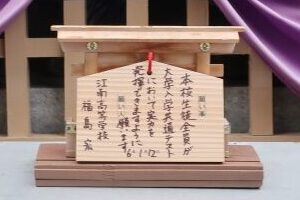 願い事
本校生徒全員が
大学入学共通テスト
において実力を
発揮できますように
願います
江南高等学校
福島宏